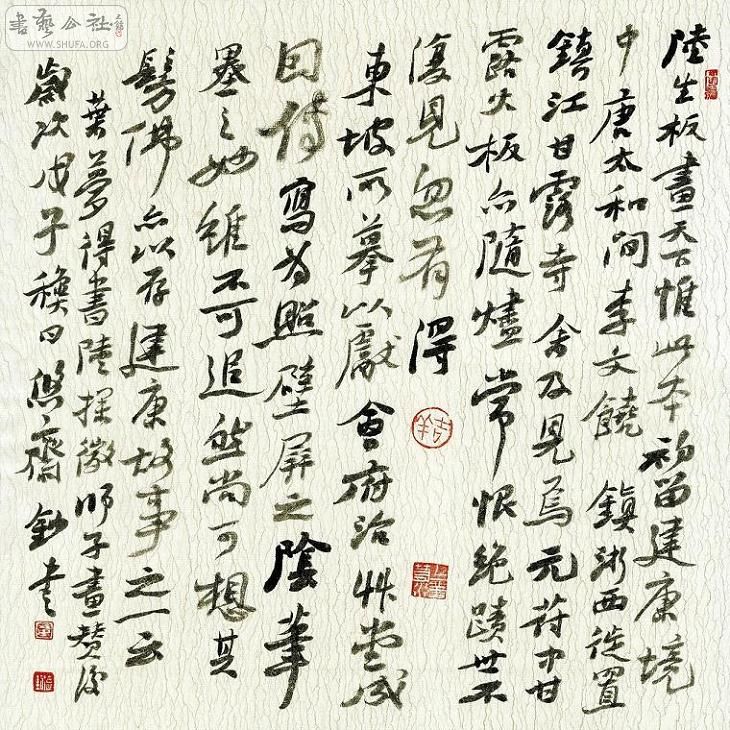 書藝公社
WWW.SHUFA.ORG
陸生板畫天下惟此本初留建康境
中唐太和間李文饒鎮浙西徙置
鎮江甘露寺余及見焉元符中甘
露火板亦隨燼常恨絕蹟世不
復見忽有得
東坡所摹以獻會府治草堂成
因傳寫為照壁屏之陰筆
墨之妙雖不可追然尚可想其
髣佛亦以存建康故事之一云
葉夢得書陸探微師子畫贊後
歲次戊子穫日悠齋鈔書